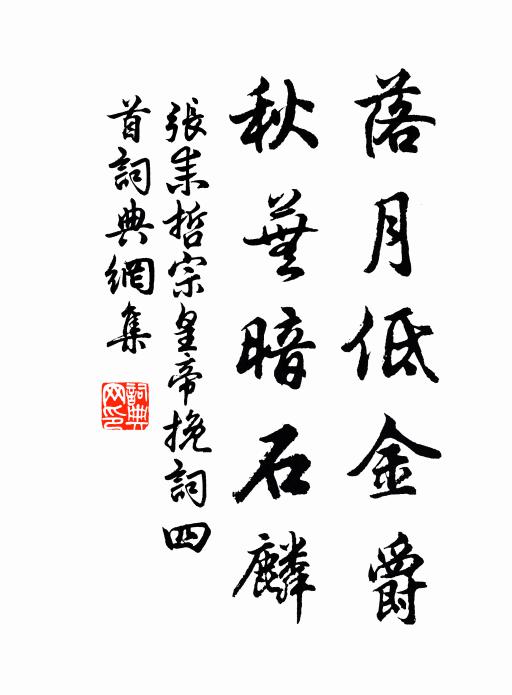 落月低金爵
秋蕪暗石麟
張耒哲宗皇帝挽詞四
首詞典網集
詞典
网印